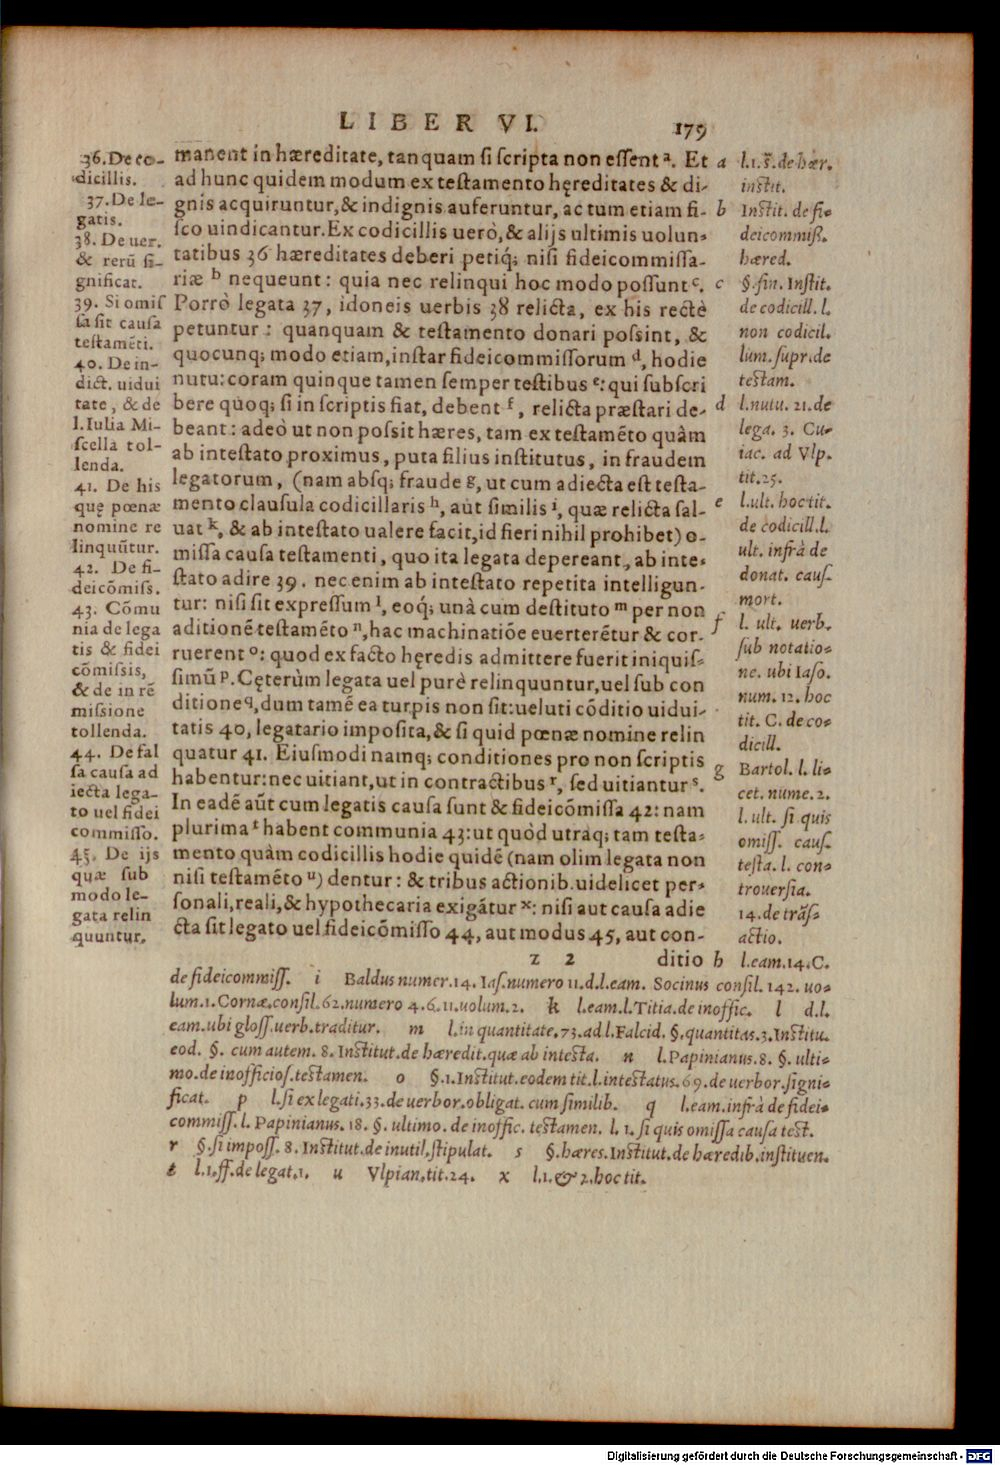 LIBER VI. 179
36. De co-
dicillis.
37. De le-
gatis.
38. De uer.
& rerũ si-
gnificat.
39. Si omiſ
ſa ſit cauſa
teſtamēti.
40. De in-
dict. uidui
tate, & de
l. Iulia Mi-
ſcella tol-
lenda.
41. De his
quę pœnæ
nomine re
linquũtur.
42. De fi-
deicōmiſs.
43. Cōmu
nia de lega
tis & fidei
cōmiſsis,
& de in rē
miſsione
tollenda.
44. De fal
ſa cauſa ad
iecta lega-
to uel fidei
commiſſo.
45. De ijs
quæ ſub
modo le-
gata relin
quuntur.
manent in hæreditate, tanquam ſi ſcripta non eſſent ᵃ. Et
ad hunc quidem modum ex teſtamento hęreditates & di-
gnis acquiruntur, & indignis auferuntur, ac tum etiam fi-
ſco uindicantur. Ex codicillis uerò, & alijs ultimis uolun-
tatibus 36 hæreditates deberi petiq́; niſi fideicommiſſa-
riæ ᵇ nequeunt: quia nec relinqui hoc modo poſſunt ᶜ.
Porrò legata 37, idoneis uerbis 38 relicta, ex his rectè
petuntur: quanquam & teſtamento donari poſsint, &
quocunq; modo etiam, inſtar fideicommiſſorum ᵈ, hodie
nutu: coram quinque tamen ſemper teſtibus ᵉ: qui ſubſcri
bere quoq; ſi in ſcriptis fiat, debent ᶠ, relicta præſtari de-
beant: adeò ut non poſsit hæres, tam ex teſtamēto quàm
ab inteſtato proximus, puta filius inſtitutus, in fraudem
legatorum, (nam abſq; fraude ᵍ, ut cum adiecta eſt teſta-
mento clauſula codicillaris ʰ, aut ſimilis ⁱ, quæ relicta ſal-
uat ᵏ, & ab inteſtato ualere facit, id fieri nihil prohibet) o-
miſſa cauſa teſtamenti, quo ita legata depereant, ab inte-
ſtato adire 39. nec enim ab inteſtato repetita intelligun-
tur: niſi ſit expreſſum ˡ, eoq́; unà cum deſtituto ᵐ per non
aditionē teſtamēto ⁿ, hac machinatiōe euerterētur & cor-
ruerent ᵒ: quod ex facto hęredis admittere fuerit iniquiſ-
ſimũ ᵖ. Cęterùm legata uel purè relinquuntur, uel ſub con
ditione ᑫ, dum tamē ea turpis non ſit: ueluti cōditio uidui-
tatis 40, legatario impoſita, & ſi quid pœnæ nomine relin
quatur 41. Eiuſmodi namq; conditiones pro non ſcriptis
habentur: nec uitiant, ut in contractibus ʳ, ſed uitiantur ˢ.
In eadē aũt cum legatis cauſa ſunt & fideicōmiſſa 42: nam
plurima ᵗ habent communia 43: ut quòd utraq; tam teſta-
mento quàm codicillis hodie quidē (nam olim legata non
niſi teſtamēto ᵘ) dentur: & tribus actionib. uidelicet per-
ſonali, reali, & hypothecaria exigātur ˣ: niſi aut cauſa adie
cta ſit legato uel fideicōmiſſo 44, aut modus 45, aut con-
z 2 ditio
a l. 1. §. de hær.
inſtit.
b Inſtit. de fi-
deicommiß.
hæred.
c §. fin. Inſtit.
de codicill. l.
non codicil.
lum. ſupr. de
teſtam.
d l. nutu. 21. de
lega. 3. Cu-
iac. ad Vlp.
tit. 25.
e l. ult. hoc tit.
de codicill. l.
ult. infrà de
donat. cauſ.
mort.
f l. ult. uerb.
ſub notatio-
ne. ubi Iaſo.
num. 12. hoc
tit. C. de co-
dicill.
g Bartol. l. li-
cet. nume. 2.
l. ult. ſi quis
omiſſ. cauſ.
teſta. l. con-
trouerſia.
14. de trāſ-
actio.
h l. eam. 14. C.
de fideicommiſſ. i Baldus numer. 14. Iaſ. numero 11. d. l. eam. Socinus conſil. 142. uo-
lum. 1. Cornæ. conſil. 62. numero 4. 6. 11. uolum. 2. k l. eam. l. Titia. de inoffic. l d. l.
eam. ubi gloſſ. uerb. traditur. m l. in quantitate. 73. ad l. Falcid. §. quantitas. 3. Inſtitu.
eod. §. cum autem. 8. Inſtitut. de hæredit. quæ ab inteſta. n l. Papinianus. 8. §. ulti-
mo. de inofficioſ. teſtamen. o §. 1. Inſtitut. eodem tit. l. inteſtatus. 69. de uerbor. ſigni-
ficat. p l. ſi ex legati. 33. de uerbor. obligat. cum ſimilib. q l. eam. infrà de fidei-
commiſſ. l. Papinianus. 18. §. ultimo. de inoffic. teſtamen. l. 1. ſi quis omiſſa cauſa teſt.
r §. ſi impoſſ. 8. Inſtitut. de inutil. ſtipulat. s §. hæres. Inſtitut. de hæredib. inſtituen.
t l. 1. ff. de legat. 1. u Vlpian. tit. 24. x l. 1. & 2. hoc tit.
Digitalisierung gefördert durch die Deutsche Forschungsgemeinschaft - DFG